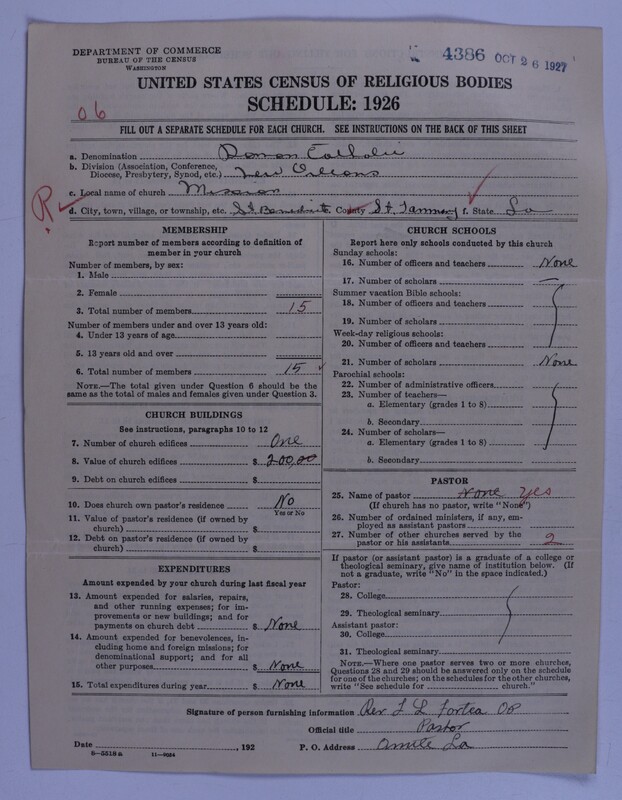 DEPARTMENT OF COMMERCE
BUREAU OF THE CENSUS
WASHINGTON
4386 OCT 26 1927
UNITED STATES CENSUS OF RELIGIOUS BODIES
SCHEDULE: 1926
06
FILL OUT A SEPARATE SCHEDULE FOR EACH CHURCH. SEE INSTRUCTIONS ON THE BACK OF THIS SHEET
a. Denomination Roman Catholic
b. Division (Association, Conference,
Diocese, Presbytery, Synod, etc.) New Orleans
c. Local name of church Mission
R
d. City, town, village, or township, etc. St Benedict e. County St Tammany f. State La
MEMBERSHIP
Report number of members according to definition of
member in your church
Number of members, by sex:
1. Male
2. Female
3. Total number of members 15
Number of members under and over 13 years old:
4. Under 13 years of age
5. 13 years old and over
6. Total number of members 15
NOTE.—The total given under Question 6 should be
the same as the total of males and females given under Question 3.
CHURCH BUILDINGS
See instructions, paragraphs 10 to 12
7. Number of church edifices One
8. Value of church edifices $ 200.00
9. Debt on church edifices $
10. Does church own pastor's residence No
Yes or No
11. Value of pastor's residence (if owned by
church) $
12. Debt on pastor's residence (if owned by
church) $
EXPENDITURES
Amount expended by your church during last fiscal year
13. Amount expended for salaries, repairs,
and other running expenses; for im-
provements or new buildings; and for
payments on church debt $ None
14. Amount expended for benevolences, in-
cluding home and foreign missions; for
denominational support; and for all
other purposes $ None
15. Total expenditures during year $ None
CHURCH SCHOOLS
Report here only schools conducted by this church
Sunday schools:
16. Number of officers and teachers None
17. Number of scholars —
Summer vacation Bible schools:
18. Number of officers and teachers
19. Number of scholars
Week-day religious schools:
20. Number of officers and teachers
21. Number of scholars None
Parochial schools:
22. Number of administrative officers
23. Number of teachers—
a. Elementary (grades 1 to 8)
b. Secondary
24. Number of scholars—
a. Elementary (grades 1 to 8)
b. Secondary
PASTOR
25. Name of pastor None Yes
(If church has no pastor, write "None")
26. Number of ordained ministers, if any, em-
ployed as assistant pastors
27. Number of other churches served by the
pastor or his assistants 2
If pastor (or assistant pastor) is a graduate of a college or
theological seminary, give name of institution below. (If
not a graduate, write "No" in the space indicated.)
Pastor:
28. College
29. Theological seminary
Assistant pastor:
30. College
31. Theological seminary
NOTE.—Where one pastor serves two or more churches,
Questions 28 and 29 should be answered only on the schedule
for one of the churches; on the schedules for the other churches,
write "See schedule for church."
Signature of person furnishing information Rev F L Fortea OP
Official title Pastor
Date , 192 P. O. Address Amite La
8—5518a 11—9034